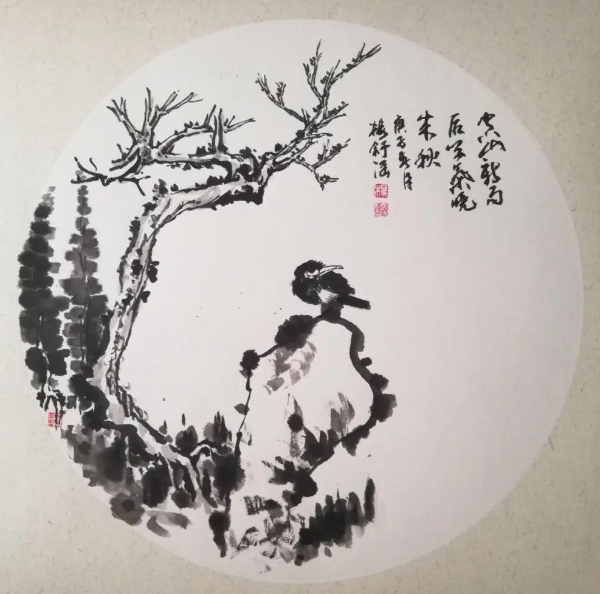 空山新雨
后天气晚
来秋
庚子 月
舒